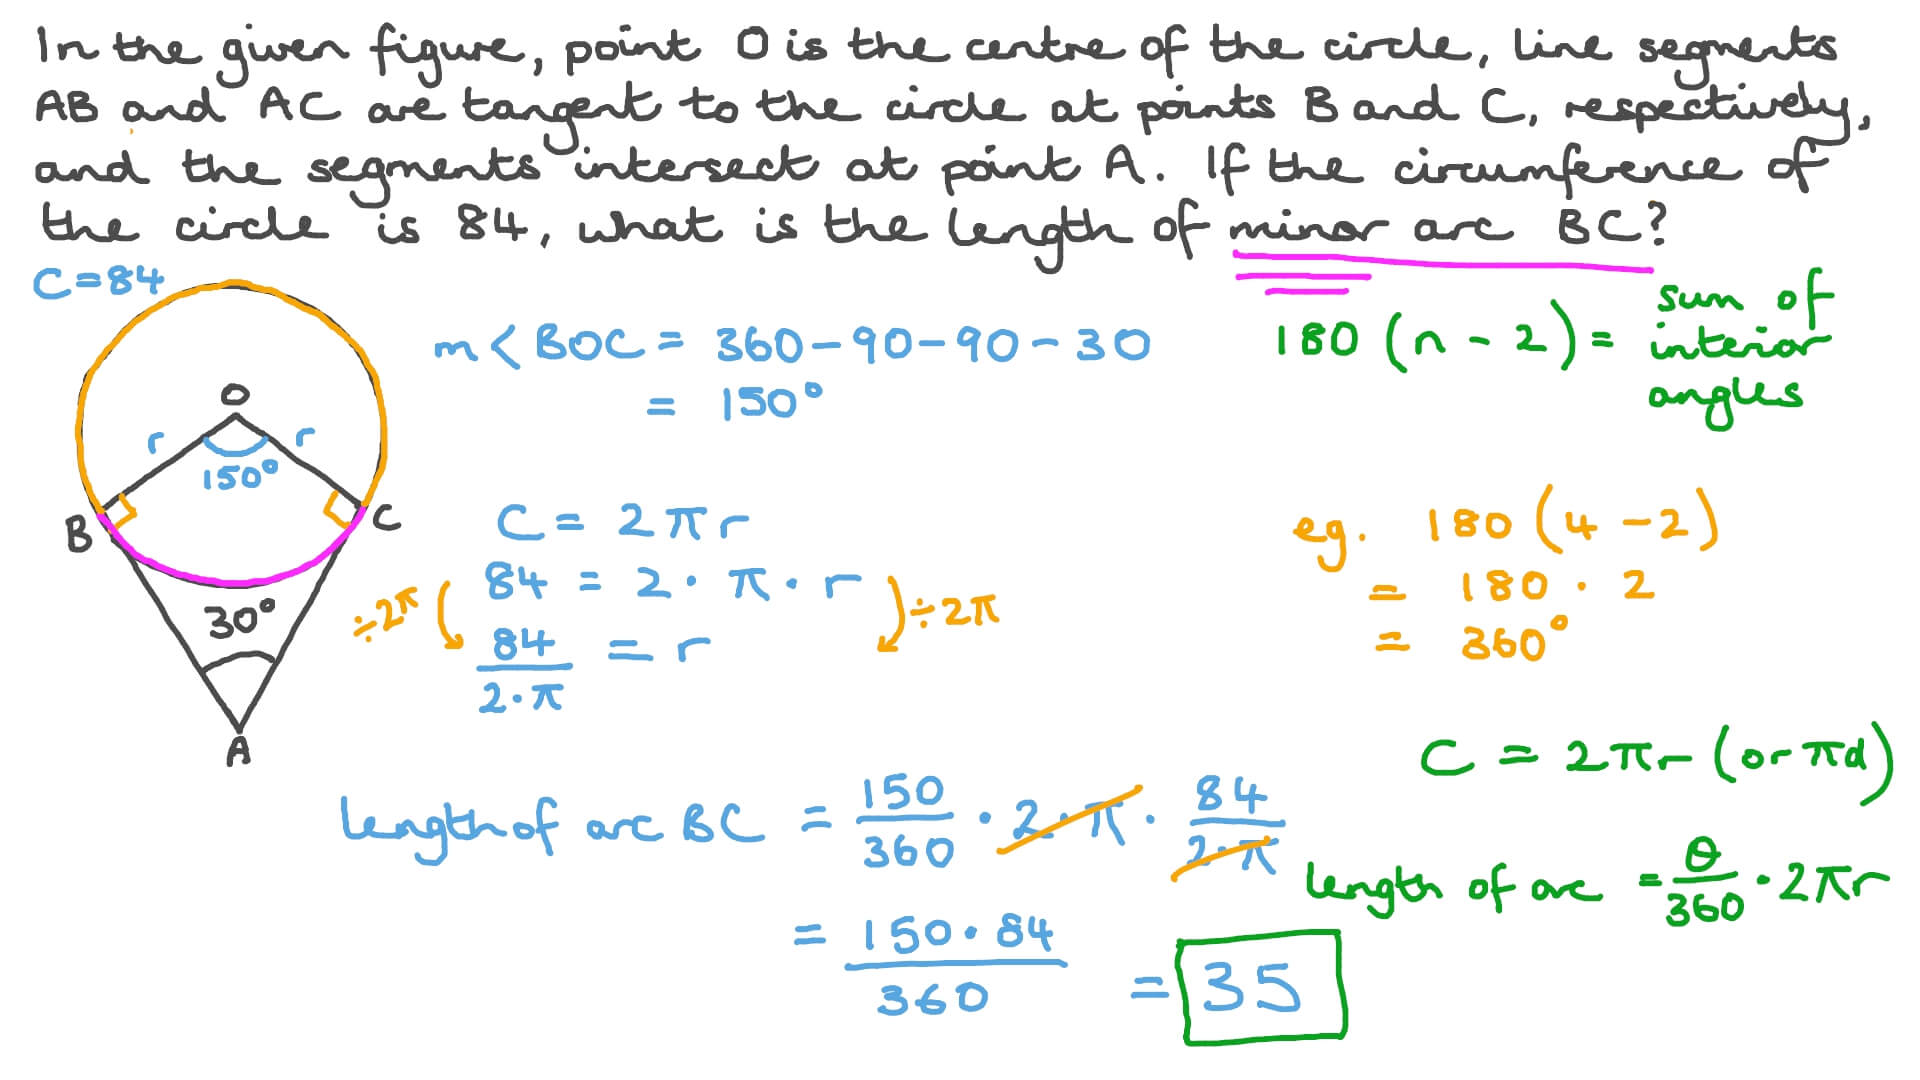 In the given figure, point O is the centre of the circle, line segments
AB and AC are tangent to the circle at points B and C, respectively,
and the segments intersect at point A. If the circumference of
the circle is 84, what is the length of minor arc BC?
C = 84
O
r
r
150°
B
C
30°
A
m < BOC = 360 - 90 - 90 - 30
= 150°
180 (n - 2) = sum of
interior
angles
C = 2πr
84 = 2 · π · r
÷2π
÷2π
84/2·π = r
eg. 180 (4 - 2)
= 180 · 2
= 360°
C = 2πr (or πd)
length of arc BC = 150/360 · 2·π · 84/2·π
length of arc = θ/360 · 2πr
= 150·84/360 = 35